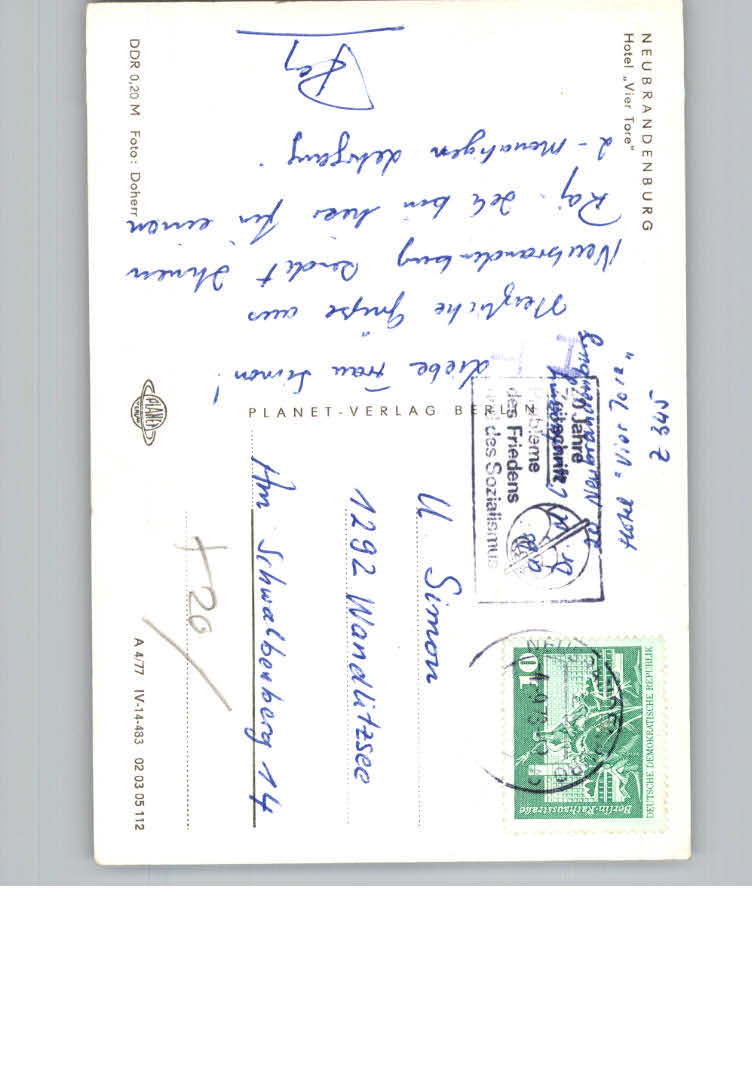 NEUBRANDENBURG
Hotel „Vier Tore"
Liebe Frau Simon!
Herzliche Grüße aus
Neubrandenburg sendet Ihnen
Raj. Ich bin hier für einen
2-monatigen Lehrgang.
Raj
Hotel "Vier Tore"
Z 345
20 Neubrandenburg
DDR 0,20 M Foto: Doherr
PLANET-VERLAG BERLIN
PLANET
VERLAG
20 Jahre
Zeitschrift
Probleme
des Friedens
und des Sozialismus
10
Berlin-Rathausstraße
DEUTSCHE DEMOKRATISCHE REPUBLIK
U. Simon
1292 Wandlitzsee
Am Schwalbenberg 14
+20
A 4/77 IV-14-483 02 03 05 112